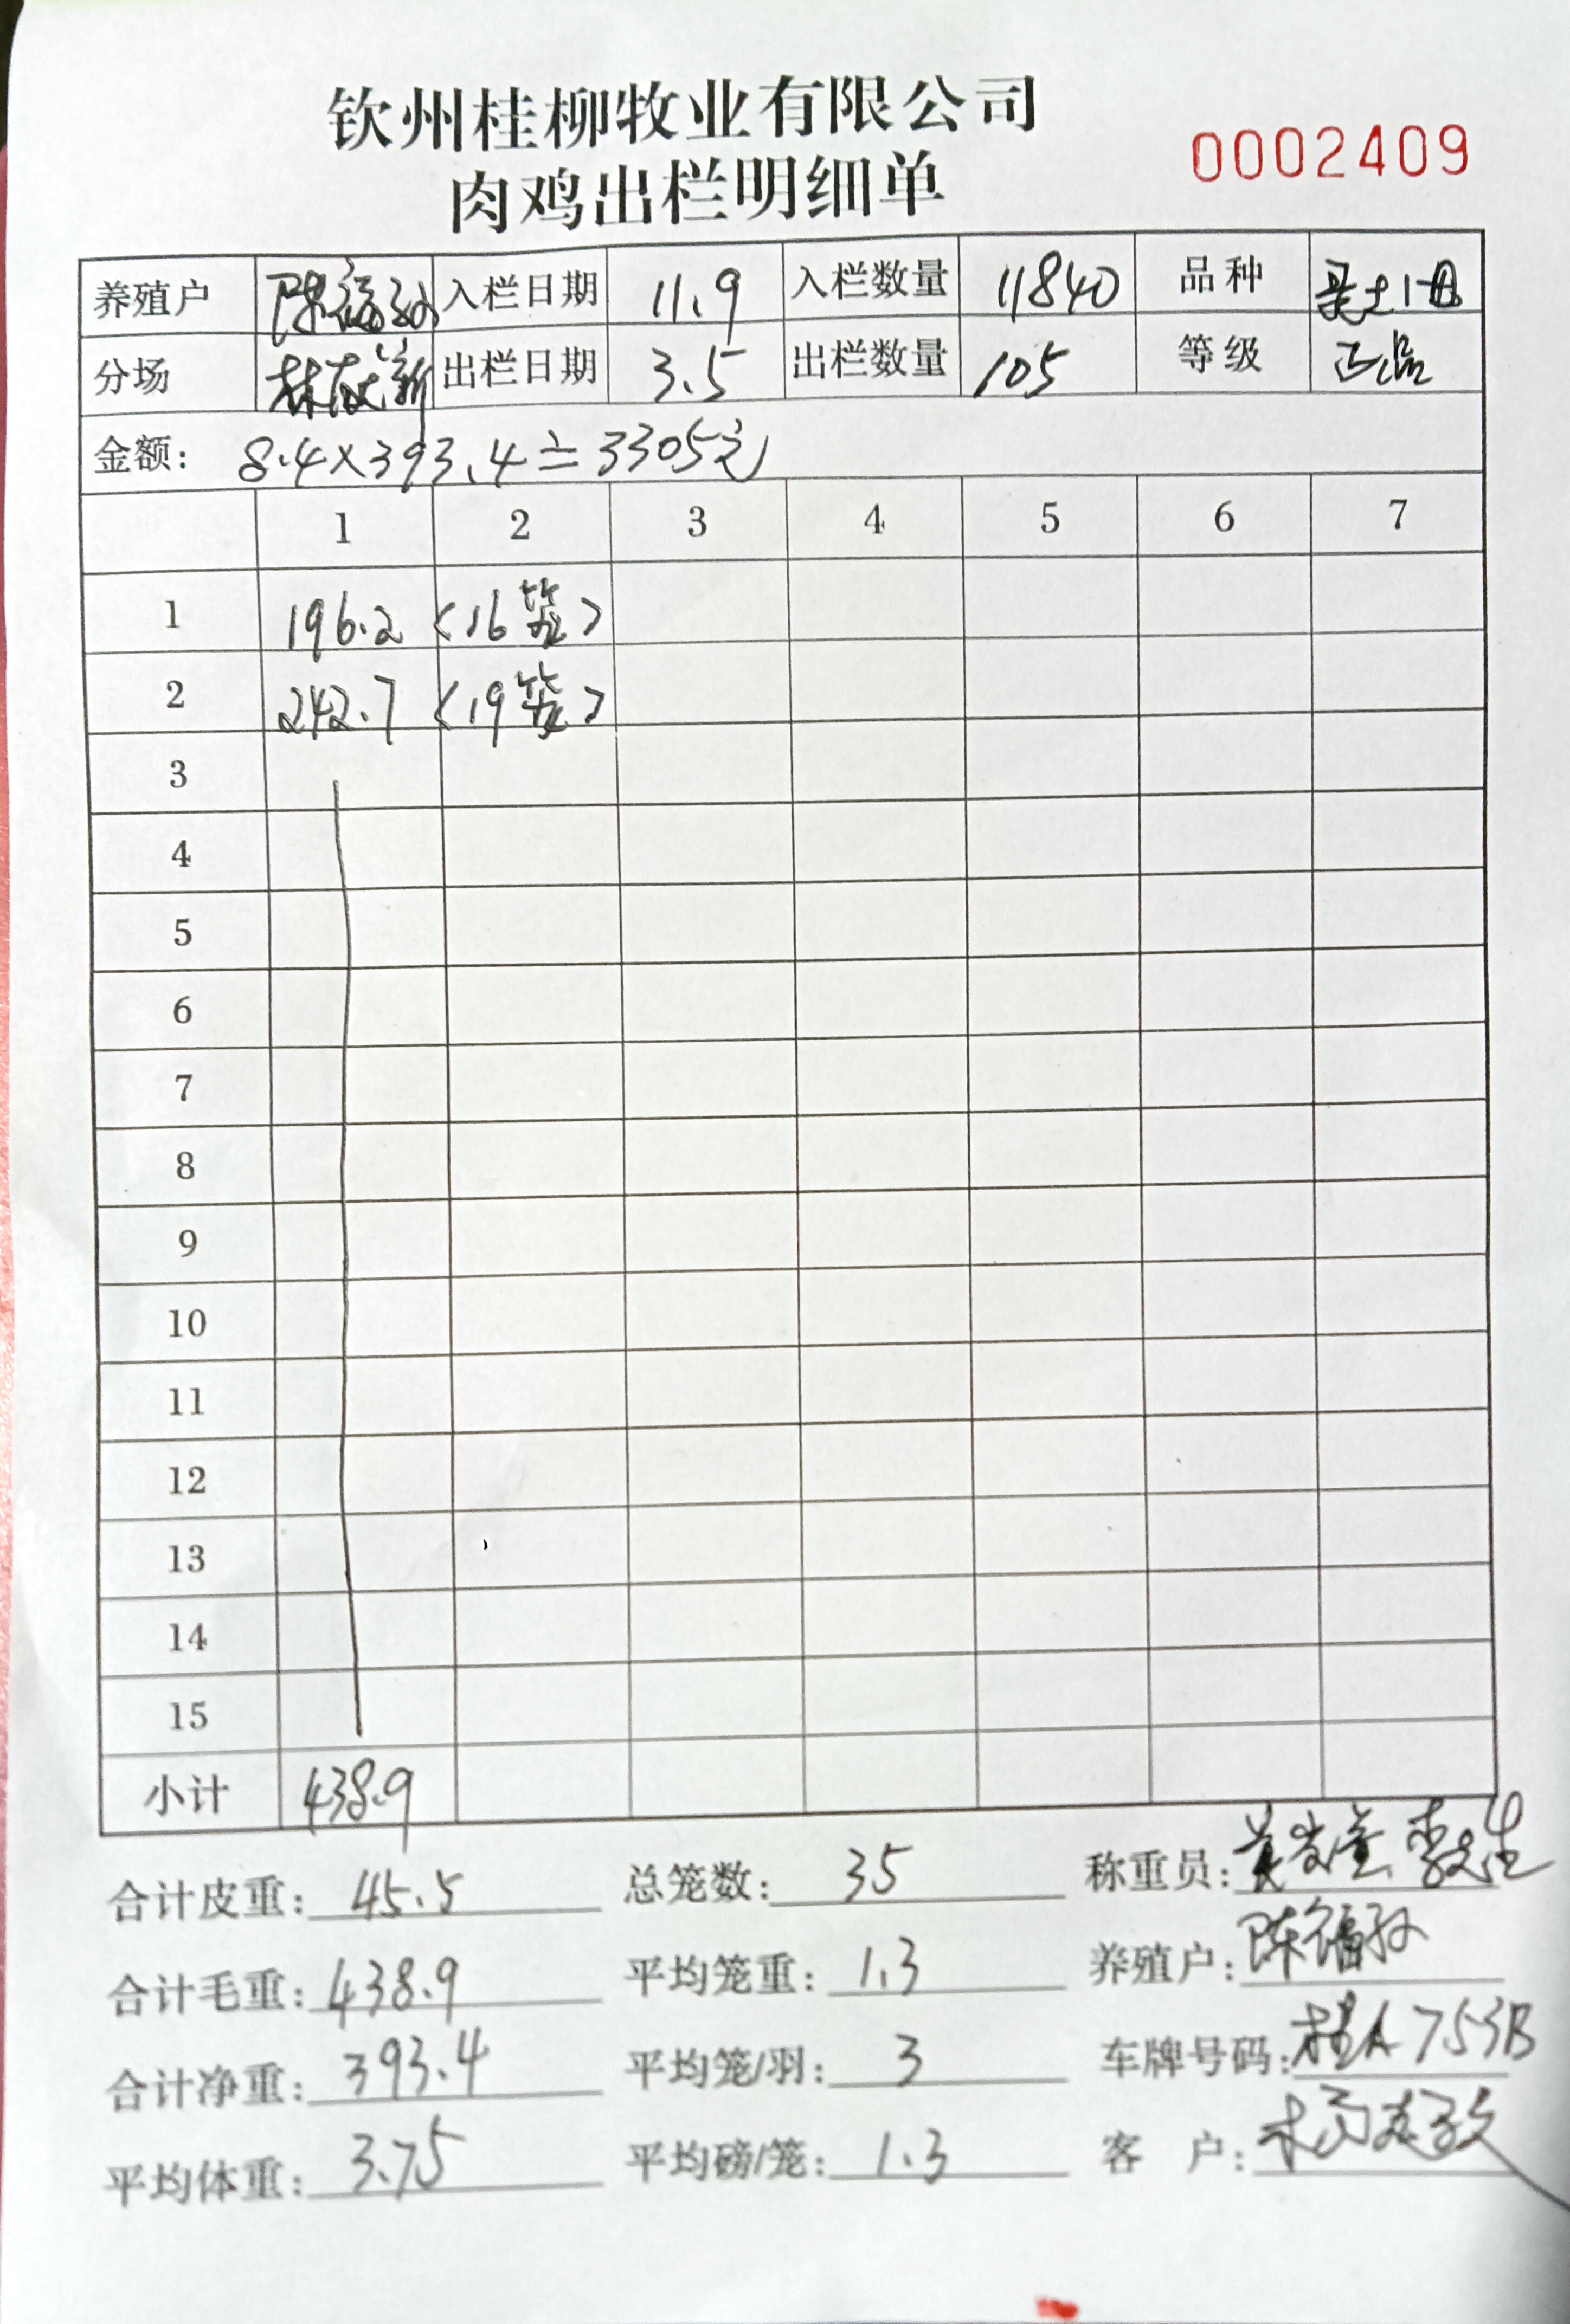 钦州桂柳牧业有限公司
肉鸡出栏明细单
0002409
养殖户 陈福孙 入栏日期 11.9 入栏数量 11840 品种
分场 出栏日期 3.5 出栏数量 105 等级 正品
金额: 8.4×393.4=3305元
1 2 3 4 5 6 7
1 196.2 (16笼)
2 242.7 (19笼)
3
4
5
6
7
8
9
10
11
12
13
14
15
小计 438.9
合计皮重: 45.5 总笼数: 35 称重员:
合计毛重: 438.9 平均笼重: 1.3 养殖户: 陈福孙
合计净重: 393.4 平均笼/羽: 3 车牌号码: 桂A753B
平均体重: 3.75 平均磅/笼: 1.3 客户: